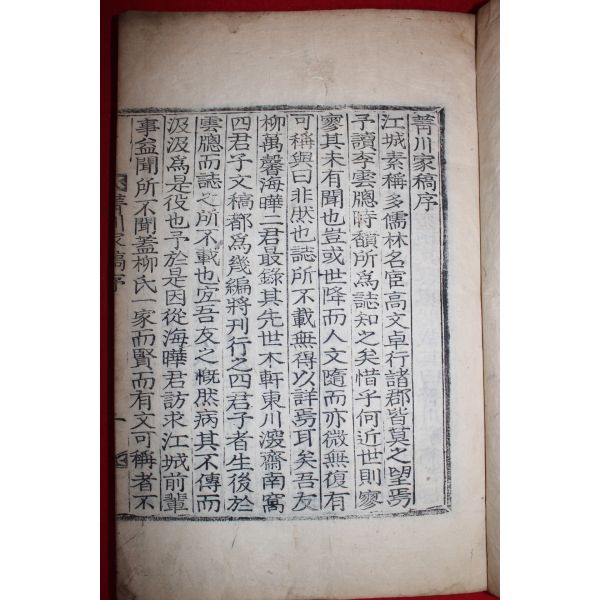 菁川家稿序
江城素稱多儒林名宦高文卓行諸郡皆莫之望焉
予讀李雲牕時馪所爲誌知之矣惜乎何近世則寥
寥其未有聞也豈或世降而人文隨而亦微無復有
可稱與曰非然也誌所不載無得以詳焉耳矣吾友
柳萬馨海曄二君最錄其先世木軒東川澀齋南窩
四君子文稿都爲幾編將刊行之四君子者生後於
雲牕而誌之所不載也宜吾友之慨然病其不傳而
汲汲爲是役也予於是因從海曄君訪求江城前輩
事益聞所不聞蓋柳氏一家而賢而有文可稱者不
菁川家稿序
一